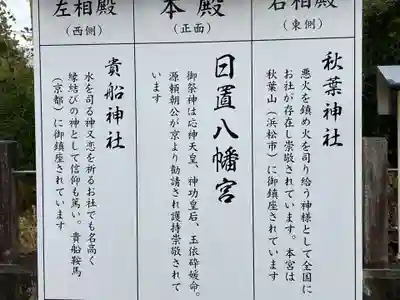 右相殿
(東側)
秋葉神社
悪火を鎮め火を司り給う神様として全国に
お社が存在し崇敬されています。本宮は
秋葉山（浜松市）に御鎮座されています
本殿
(正面)
日置八幡宮
御祭神は応神天皇、神功皇后、玉依碎媛命。
源頼朝公が京より勧請され護持崇敬されて
います
左相殿
(西側)
貴船神社
水を司る神又恋を祈るお社でも名高く
縁結びの神として信仰も篤い。貴船鞍馬
（京都）に御鎮座されています